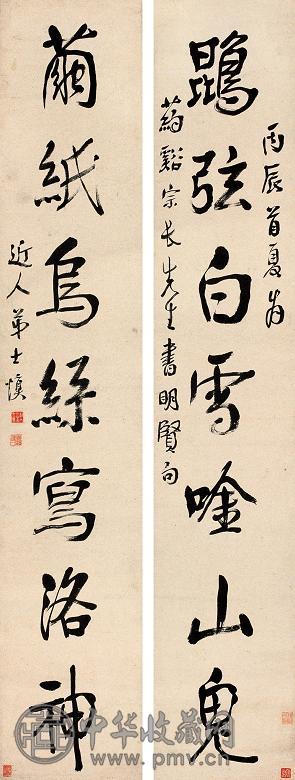 丙辰首夏為
鵾弦白雪唫山鬼
葯谿宗長先生書明賢句
繭紙烏絲寫洛神
近人弟士慎
中华收藏网